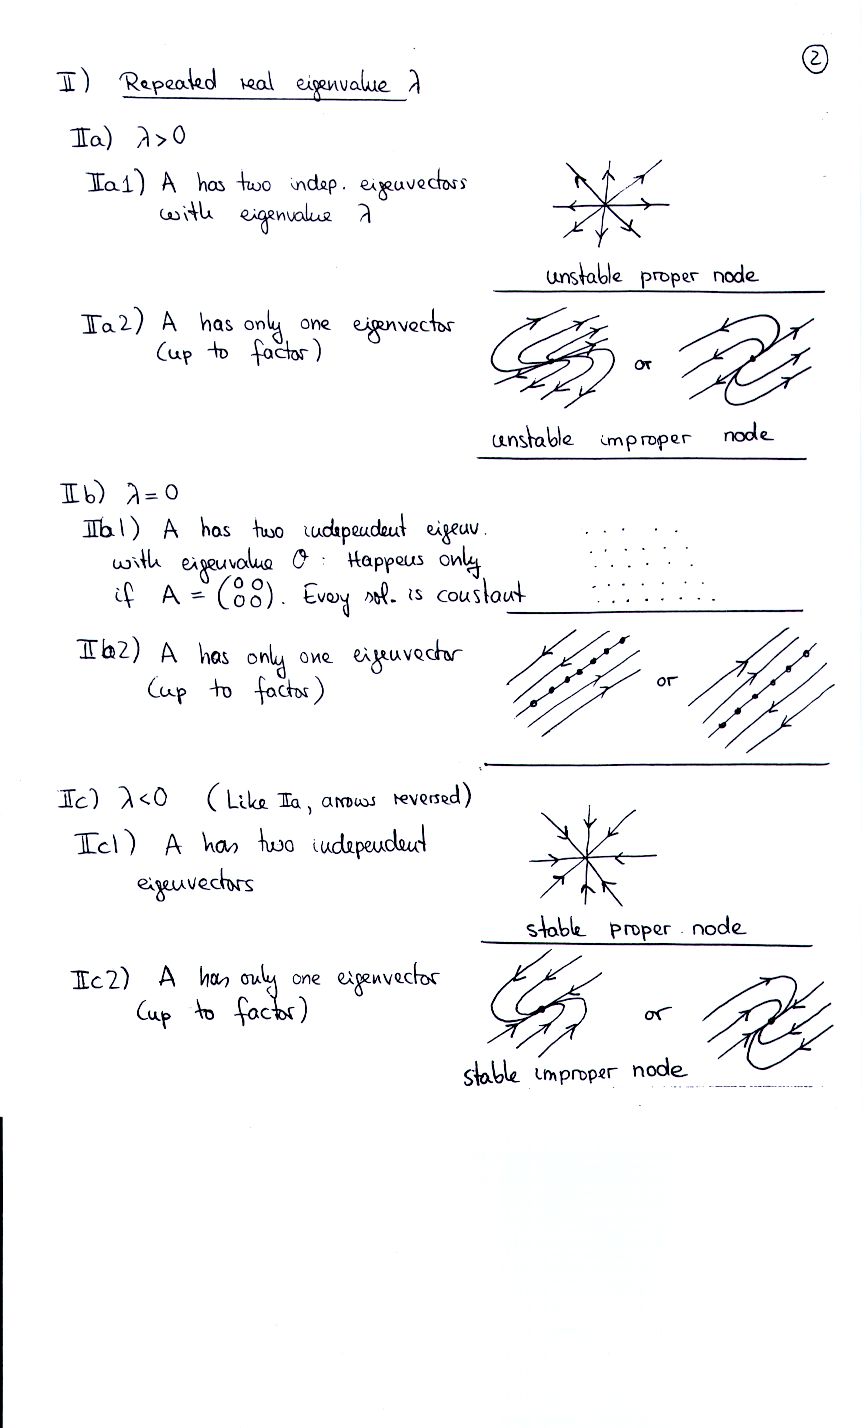 ②
II) Repeated real eigenvalue λ
IIa) λ>0
IIa1) A has two indep. eigenvectors
with eigenvalue λ
unstable proper node
IIa2) A has only one eigenvector
(up to factor)
or
unstable improper node
IIb) λ=0
IIb1) A has two independent eigenv.
with eigenvalue 0 : Happens only
if A = (0 0
0 0). Every sol. is constant
IIb2) A has only one eigenvector
(up to factor)
or
IIc) λ<0 (Like IIa, arrows reversed)
IIc1) A has two independent
eigenvectors
stable proper node
IIc2) A has only one eigenvector
(up to factor)
or
stable improper node